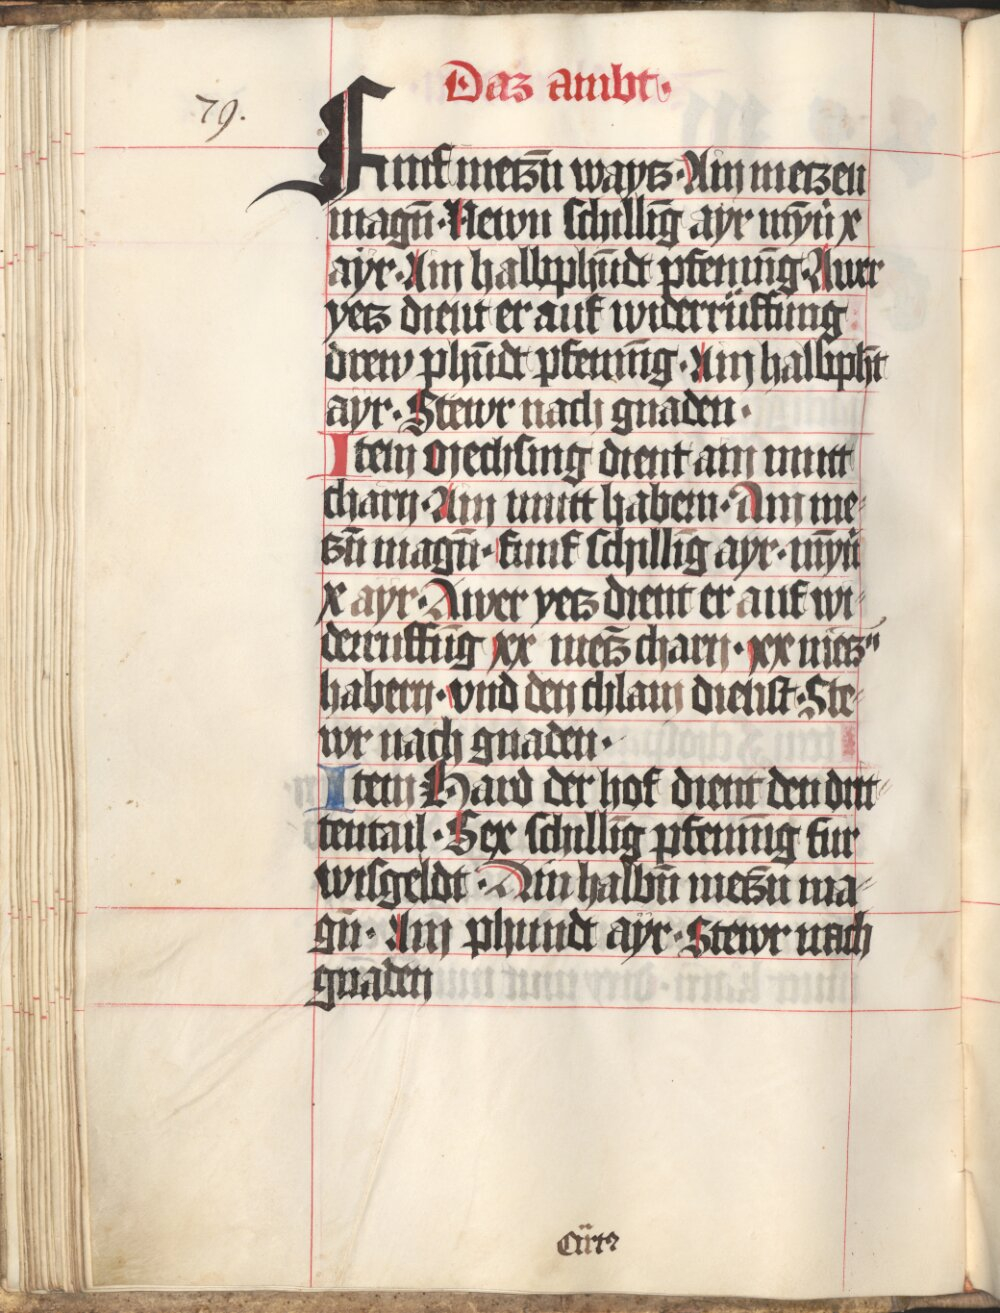 Daz ambt·
79.
Funf metzn̄ waytz· Ain metzen
magn̄· Newn schilling ayr myn̄ x
aÿr· Ain halbphūdt pfennīg· Awer
yetz dient er auf widerrüffung
drew phūdt pfennīg· Ain halbpht̄
ayr· Stewr nach gnaden·
Item Mechsing dient ain mutt
charn· Ain mutt habern· Ain me⸗
tzn̄ magn̄· funf schilling ayr· myn̄
x ayr· Awer yetz dient er auf wi⸗
derruffūg xx metz charn· xx metzn
habern· vnd den chlain dienst· Ste⸗
wr nach gnaden·
Item Hard der hof dient den drit⸗
tentail· Sex schillīg pfennīg fur
wisgeldt· Ain halbn̄ metzn̄ ma⸗
gn̄· Ain phundt aÿr· Stewr nach
gnaden